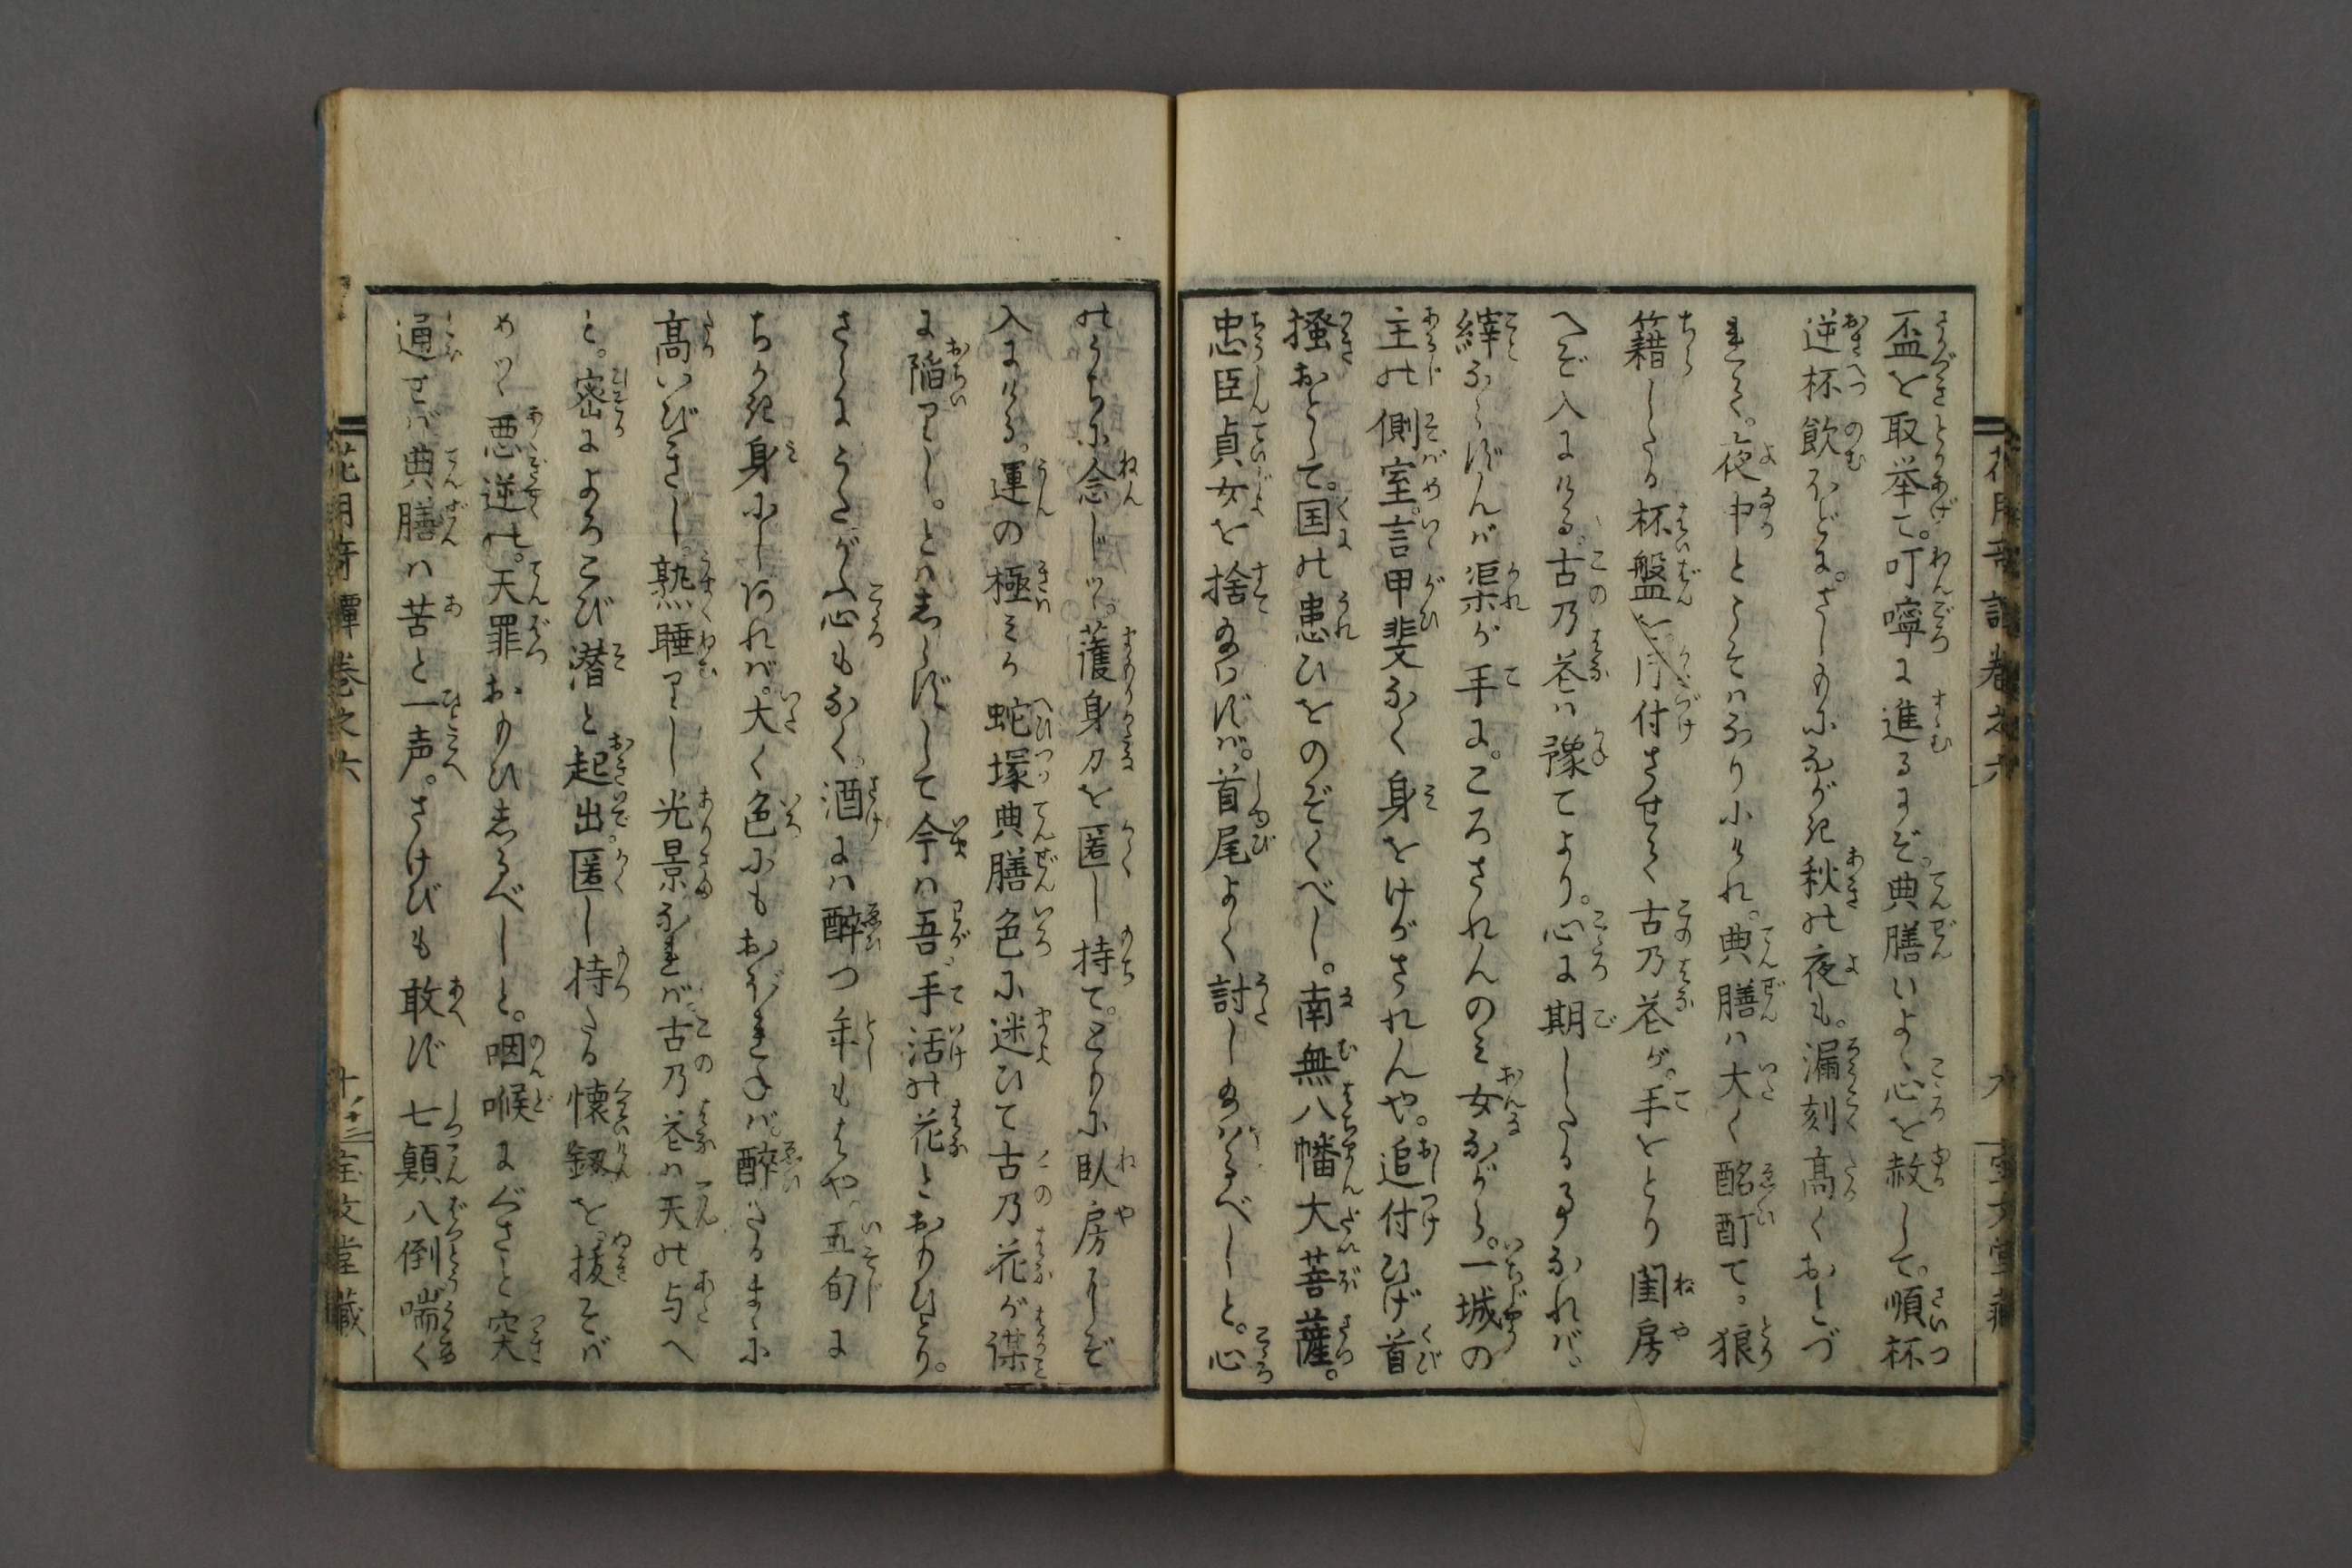 盃を取挙て。叮嚀に進るまゝぞ。典膳いよゝ心を赦して。順杯
逆杯飲ほどに。さしもにながき秋の夜も。漏刻高くおとづ
れて。夜中とこそはなりにけれ。典膳は大く酩酊て。狼
籍したる杯盤を。片付させて古乃花が。手をとり閨房
へぞ入にける。古乃花は豫てより。心に期したる事なれば。
縡ならずんば渠が手に。ころされんのみ女ながら。一城の
主の側室。言甲斐なく身をけがされんや。追付ひげ首
掻おとして。国の患ひをのぞくべし。南無八幡大菩薩。
忠臣貞女を捨給はずば。首尾よく討し給はるべしと。心
のうちに念じつゝ。護身刀を匿し持て。ともに臥房りぞ
入にける。運の極みか蛇塚典膳色に迷ひて古乃花が謀
に陥りし。とはしらずして今は吾手活の花とおもひとり。
さらにうたがふ心もなく。酒には酔つ年もはや。五旬に
ちかき身にしあれば。大く色にもおぼれねば。酔たるまゝに
高いびきし。熟睡りし光景なれば。古乃花は天の与へ
と。密によろこび潜と起出。匿し持たる懐釼を。抜そば
めつゝ悪逆の。天罪おもひしるべしと。咽喉にぐさと突
通せば典膳は苦と一声。さけびも敢ず七顛八倒喘く
花月奇譚巻之六
九
宝文堂蔵
花月奇譚巻之六
宝文堂蔵